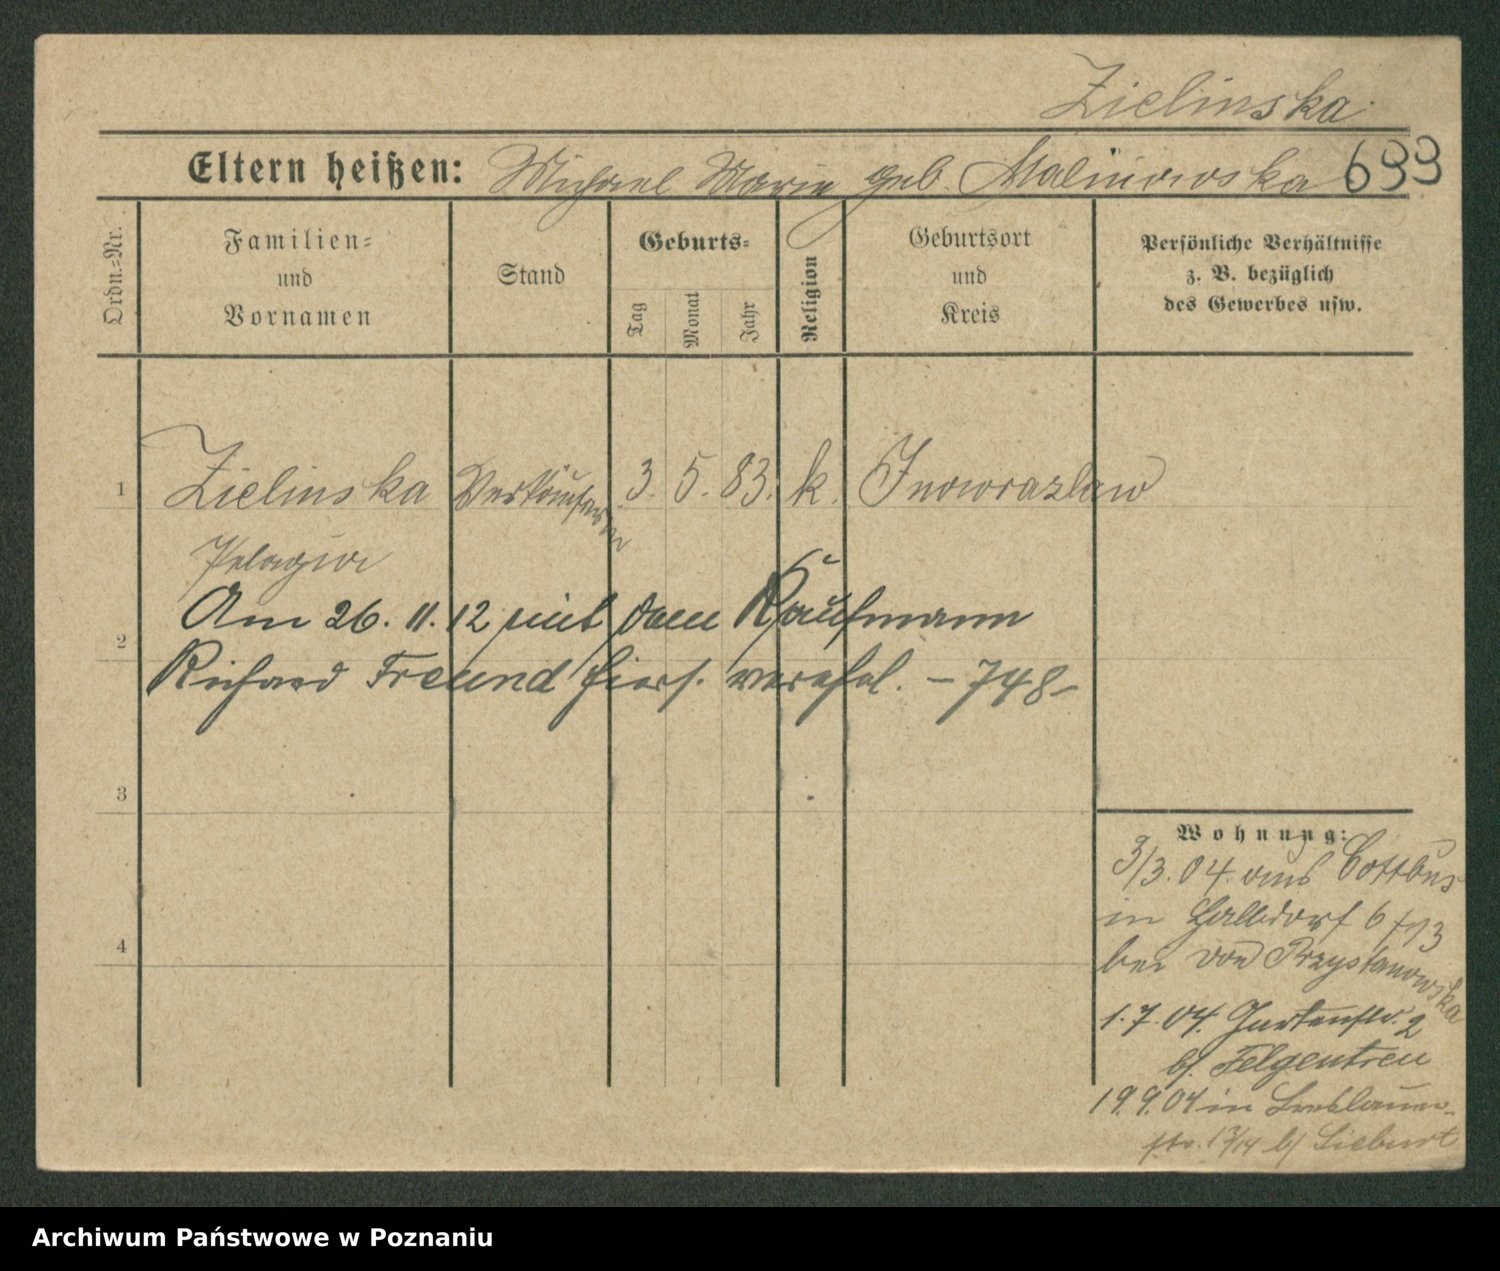 Zielinska
Eltern heißen: Michael Marie geb. Malinowska 699
Ordn.-Nr.
Familien-
und
Vornamen
Stand
Geburts-
Tag
Monat
Jahr
Religion
Geburtsort
und
Kreis
Persönliche Verhältnisse
z. B. bezüglich
des Gewerbes usw.
1 Zielinska Verkäuferin 3. 5. 83. k. Inowrazlaw
Pelagia
Am 26. 11. 12 mit dem Kaufmann
2
Richard Freund hiers. verehel. – 748 –
3
4
Wohnung:
3/3. 04. aus Cottbus
in Halbdorf 6
bei von Przystanowska
1. 7. 04. Gartenstr. 2
b/ Felgentreu
19. 9. 04 in Breslauer-
str. 13/14 b/ Siebert
Archiwum Państwowe w Poznaniu